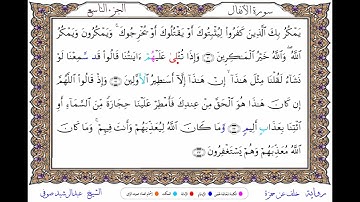 الجزء التاسع
سورة الأنفال
يَمْكُرُ بِكَ ٱلَّذِينَ كَفَرُوا۟ لِيُثْبِتُوكَ أَوْ يَقْتُلُوكَ أَوْ يُخْرِجُوكَ ۚ وَيَمْكُرُونَ وَيَمْكُرُ
ٱللَّهُ ۖ وَٱللَّهُ خَيْرُ ٱلْمَـٰكِرِينَ وَإِذَا تُتْلَىٰ عَلَيْهُمْ ءَايَـٰتُنَا قَالُوا۟ قَدْ سَمِعْنَا لَوْ
نَشَآءُ لَقُلْنَا مِثْلَ هَـٰذَآ ۙ إِنْ هَـٰذَآ إِلَّآ أَسَـٰطِيرُ ٱلْأَوَّلِينَ وَإِذْ قَالُوا۟ ٱللَّهُمَّ
إِن كَانَ هَـٰذَا هُوَ ٱلْحَقَّ مِنْ عِندِكَ فَأَمْطِرْ عَلَيْنَا حِجَارَةً مِّنَ ٱلسَّمَآءِ أَوِ
ٱئْتِنَا بِعَذَابٍ أَلِيمٍ وَمَا كَانَ ٱللَّهُ لِيُعَذِّبَهُمْ وَأَنتَ فِيهِمْ ۚ وَمَا كَانَ
ٱللَّهُ مُعَذِّبَهُمْ وَهُمْ يَسْتَغْفِرُونَ
برواية خلف عن حمزة
الشيخ عبدالرشيد صوفي